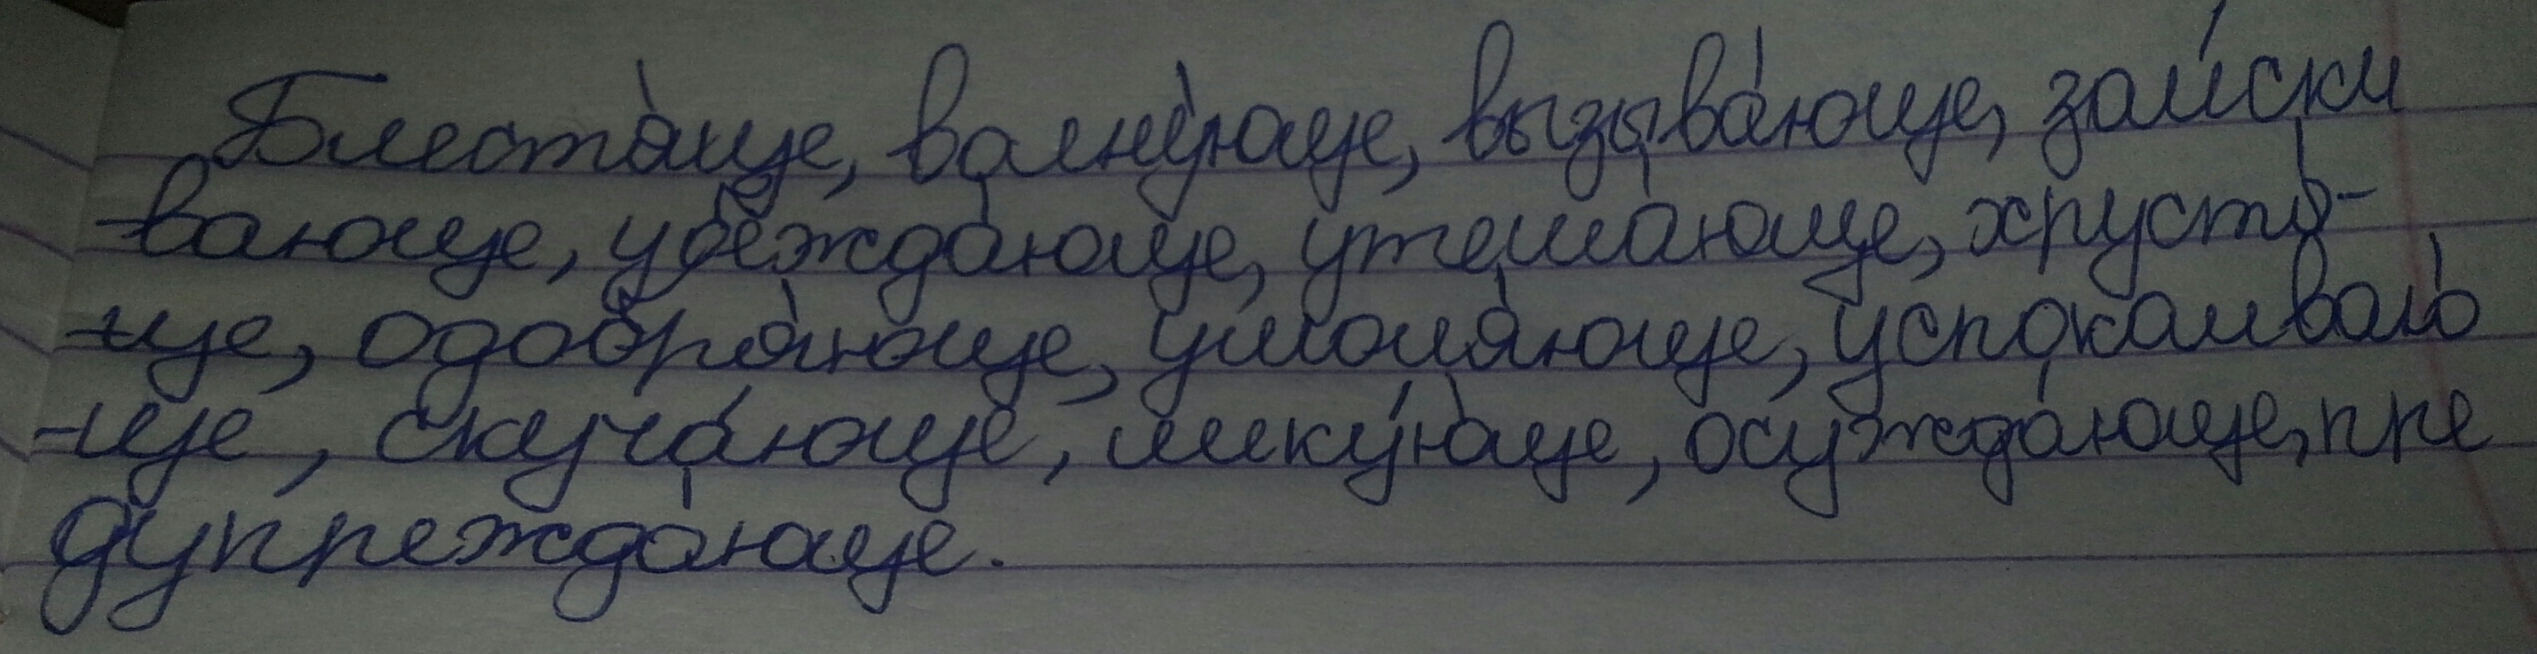 Блестя́ще, валну́юще, вызыва́юще, заи́ски
-вающе, убежда́юще, утеша́юще, хрустя́-
-ще, одобря́юще, умоля́юще, успокаиваю
-ще, скуча́юще, лику́юще, осужда́юще, пре
дупрежда́юще.